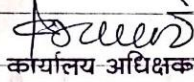 कार्यालय अधिक्षक